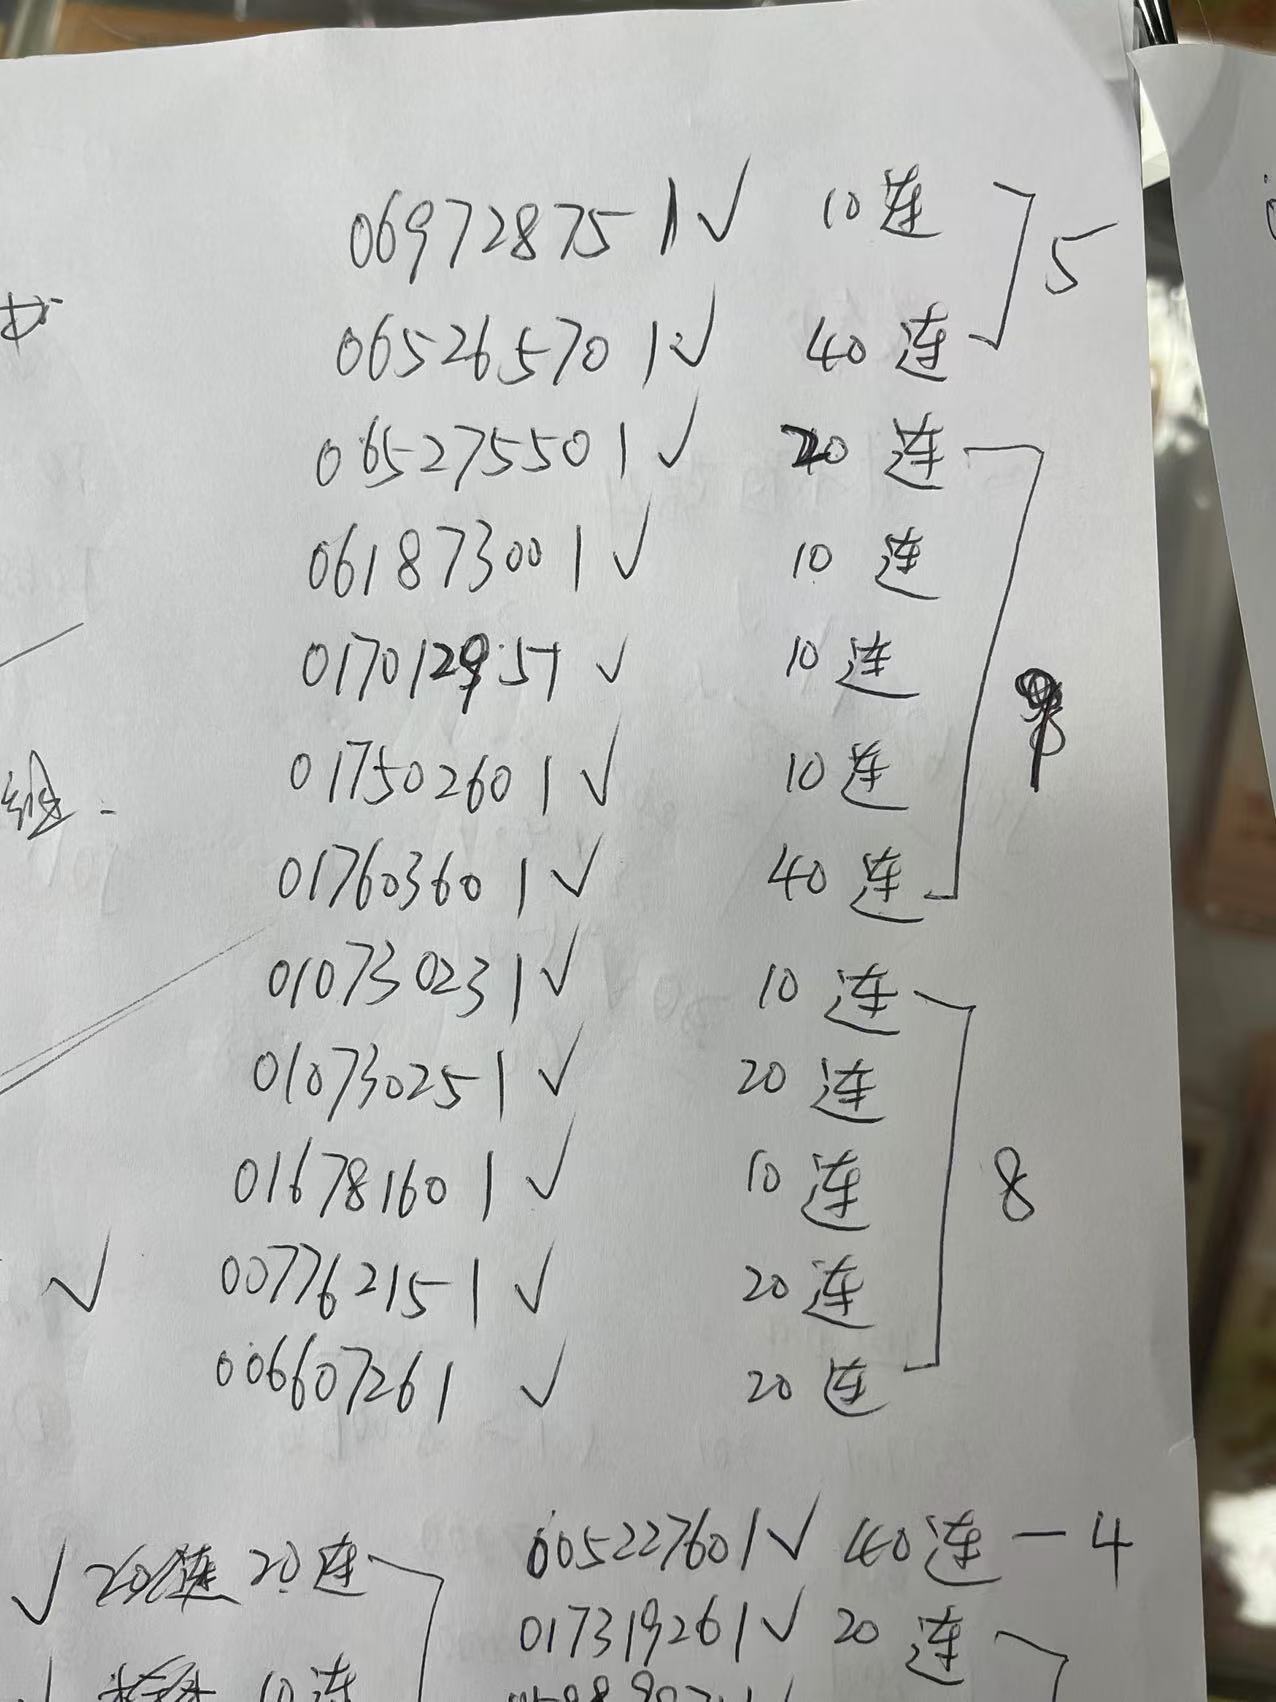 069728751√ 10连
5
065265701√ 40连
065275501√ 20连
061873001√ 10连
017012951√ 10连
017502601√ 10连
017603601√ 40连
010730231√ 10连
010730251√ 20连
016781601√ 10连
8
007762151√ 20连
√
006607261 √ 20连
005227601√ 40连-4
√ 20连
017319261√ 20连
10连